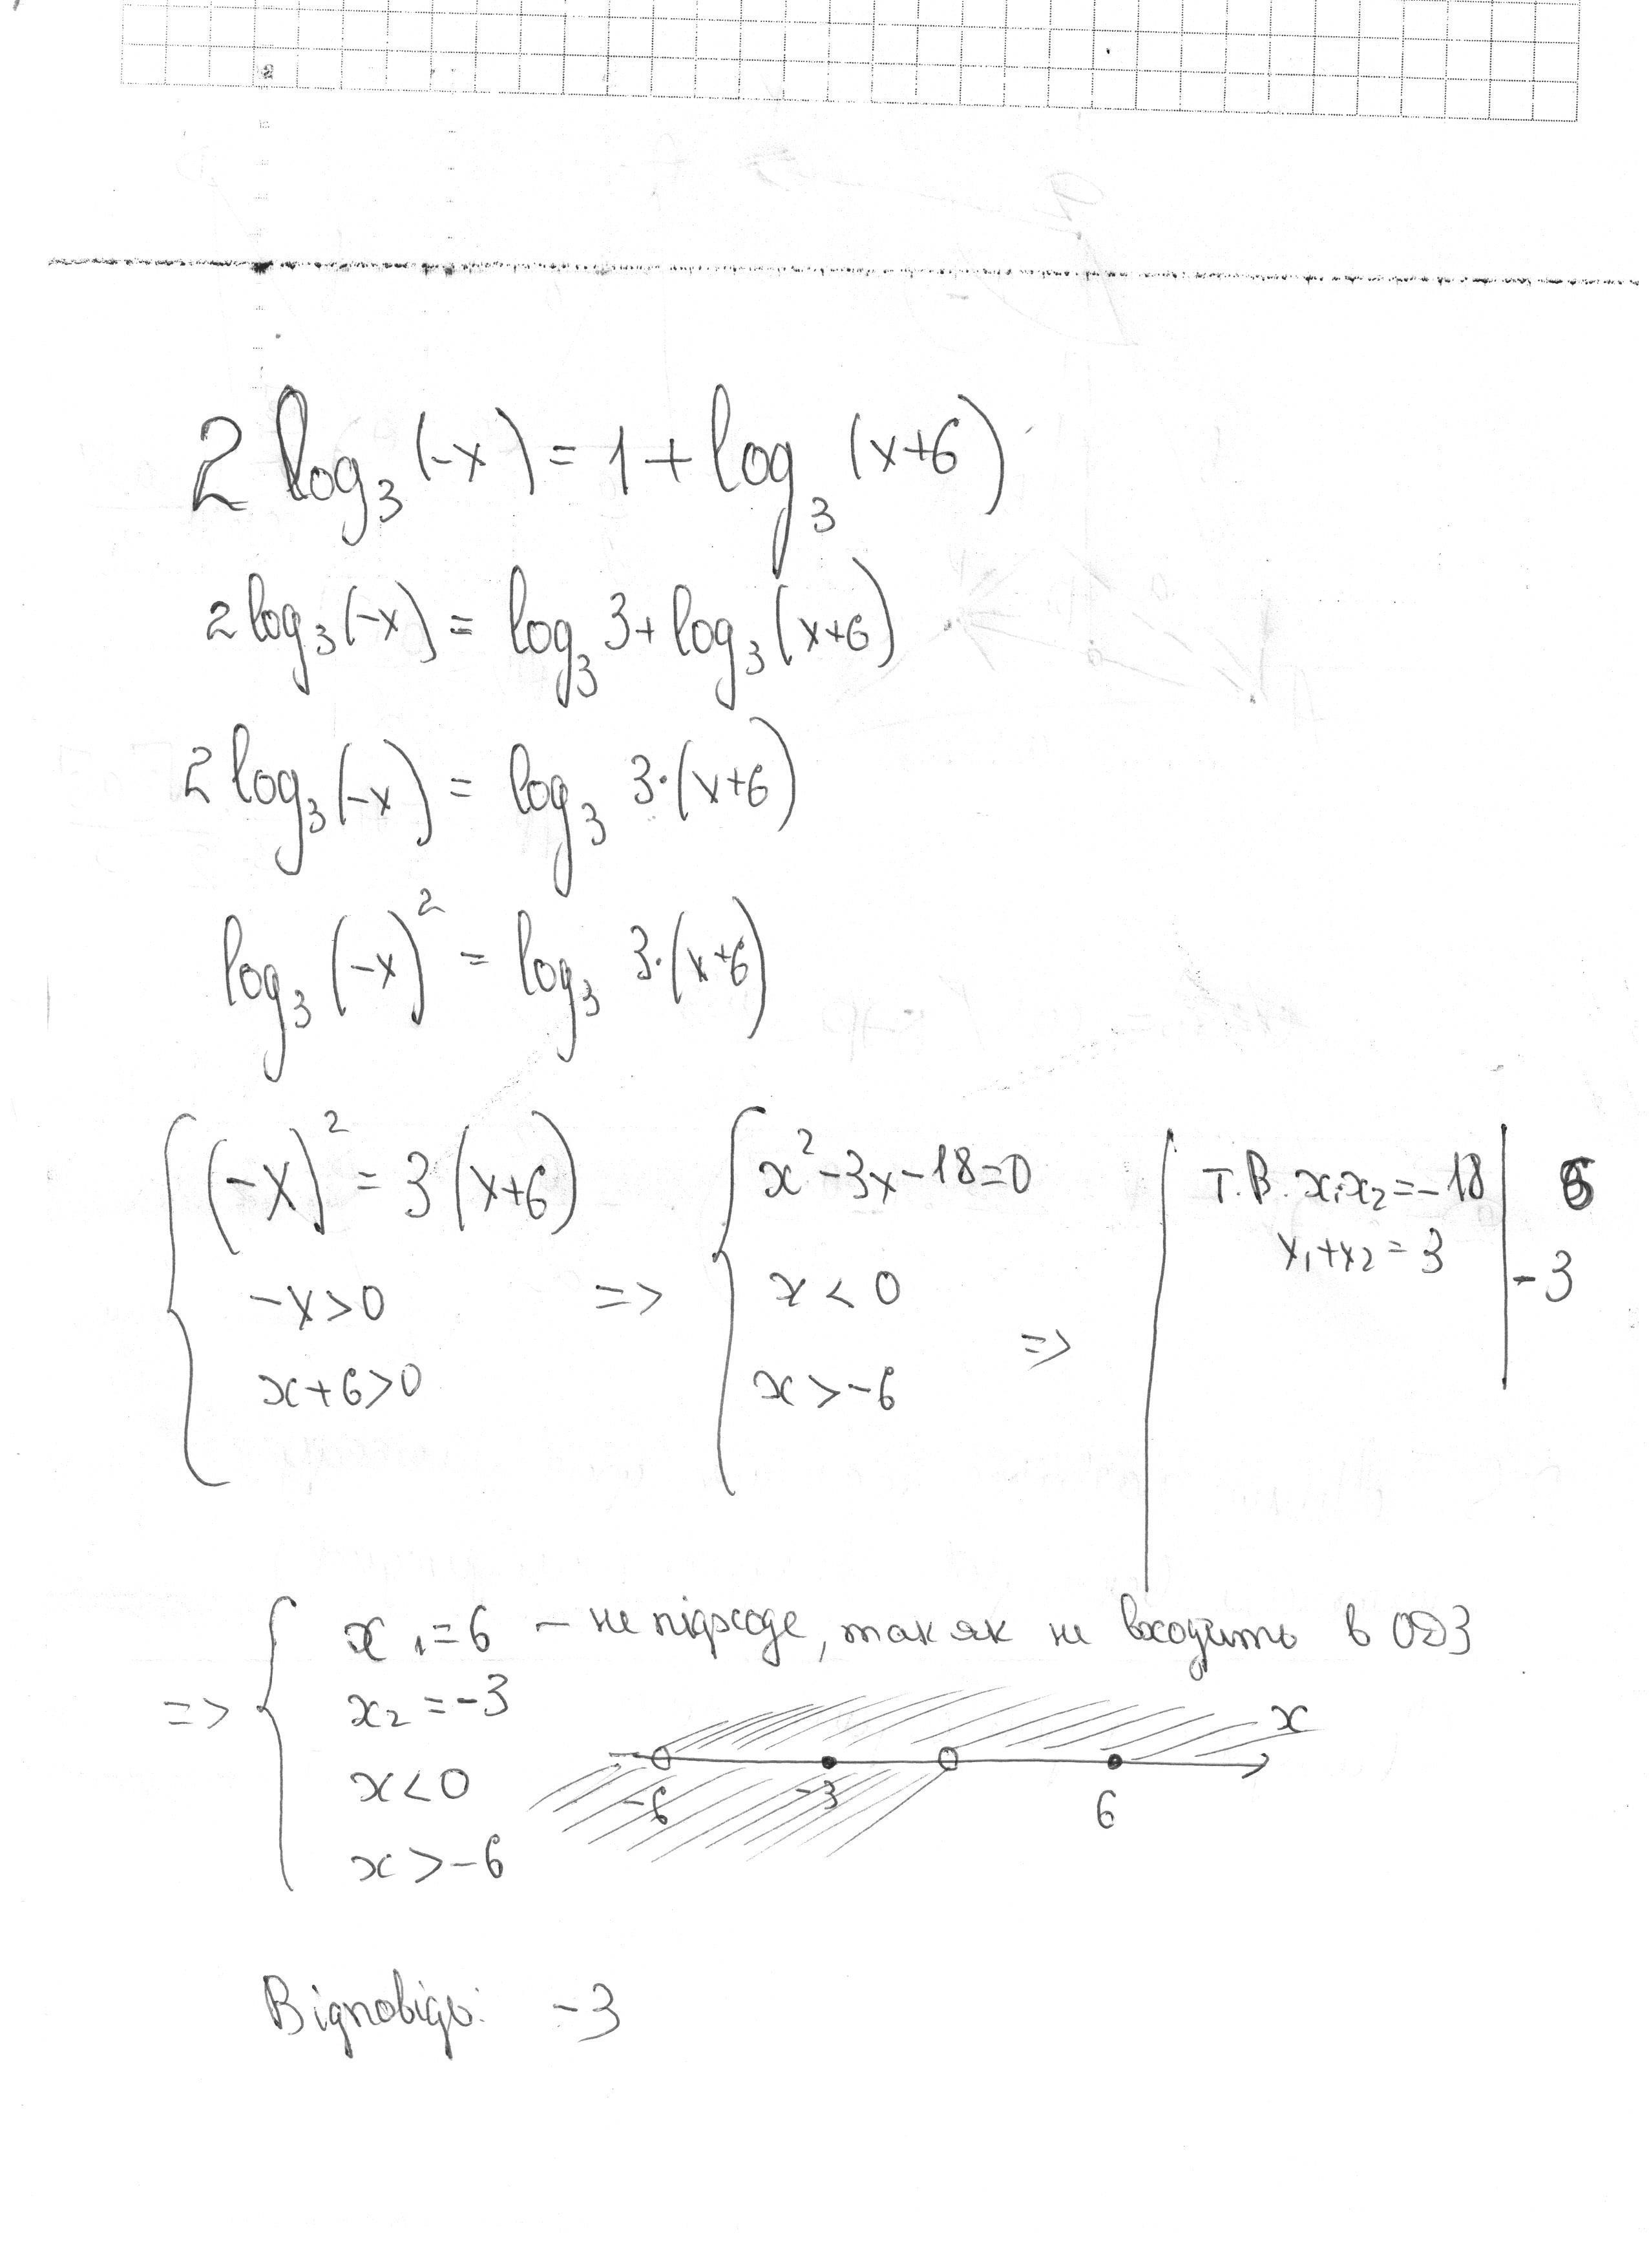 2 log₃ (-x) = 1 + log₃ (x+6)
2 log₃ (-x) = log₃ 3 + log₃ (x+6)
2 log₃ (-x) = log₃ 3·(x+6)
log₃ (-x)² = log₃ 3·(x+6)
(-x)² = 3 (x+6)
-x>0
x+6>0
=>
x² - 3x - 18 = 0
x < 0
x > -6
=>
Т.В. x₁x₂ = -18
x₁+x₂ = 3
6
-3
=>
x₁ = 6 – не підходе, так як не входить в ОДЗ
x₂ = -3
x < 0
x > -6
x
-6 -3 6
Відповідь: -3